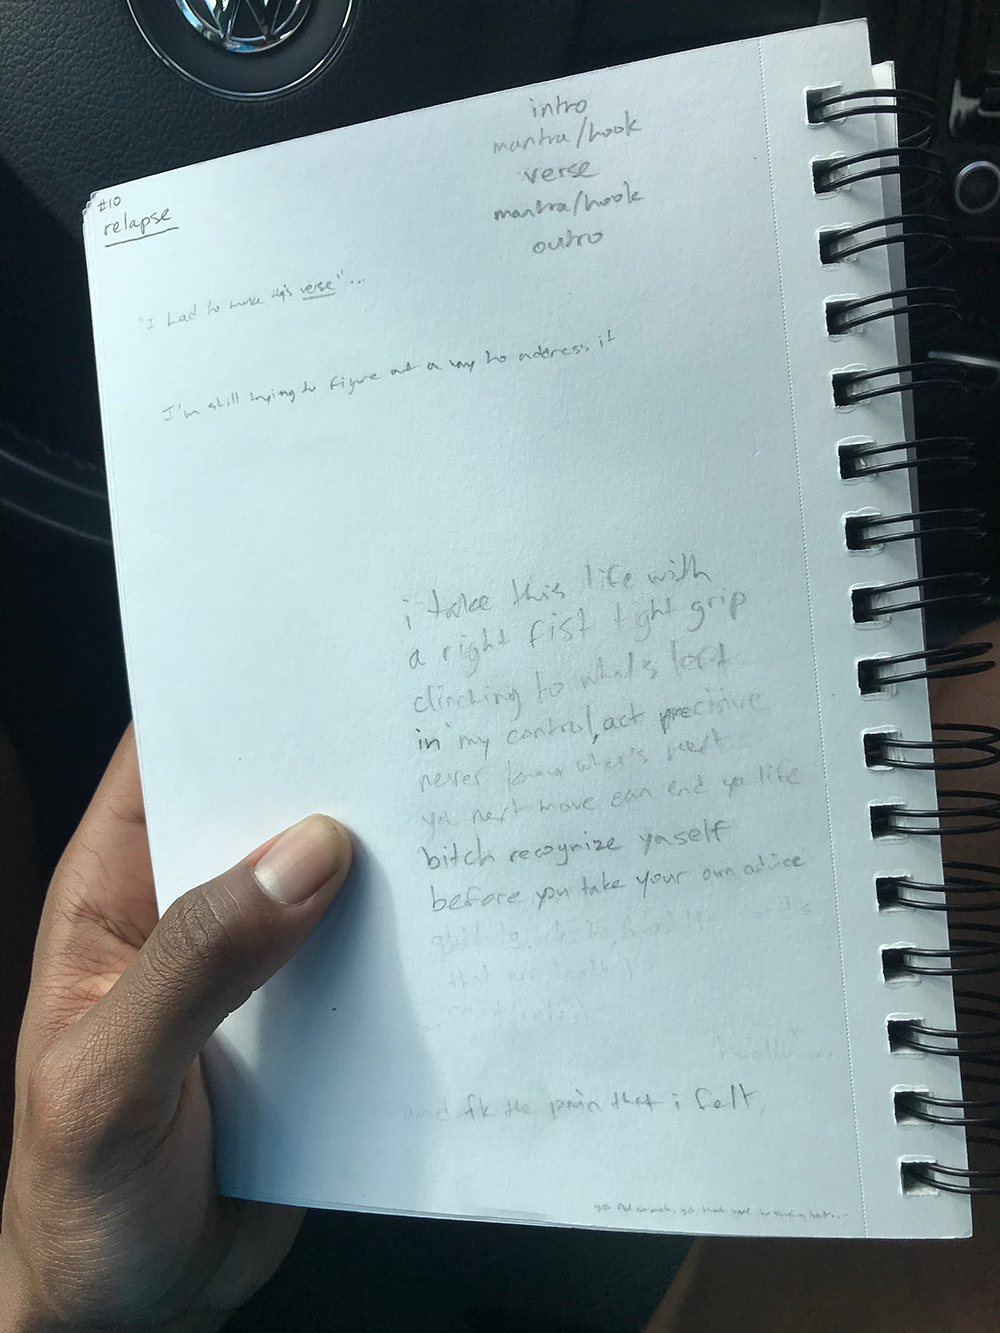 #10
relapse
intro
mantra/hook
verse
mantra/hook
outro
"I had to make this verse"...
I'm still trying to figure out a way to address it
i take this life with
a right fist tight grip
clinching to what's left
in my control, act precisive
never know what's next
ya next move can end ya life
bitch recognize yaself
before you take your own advice
that
health...
and fk the pain that i felt,